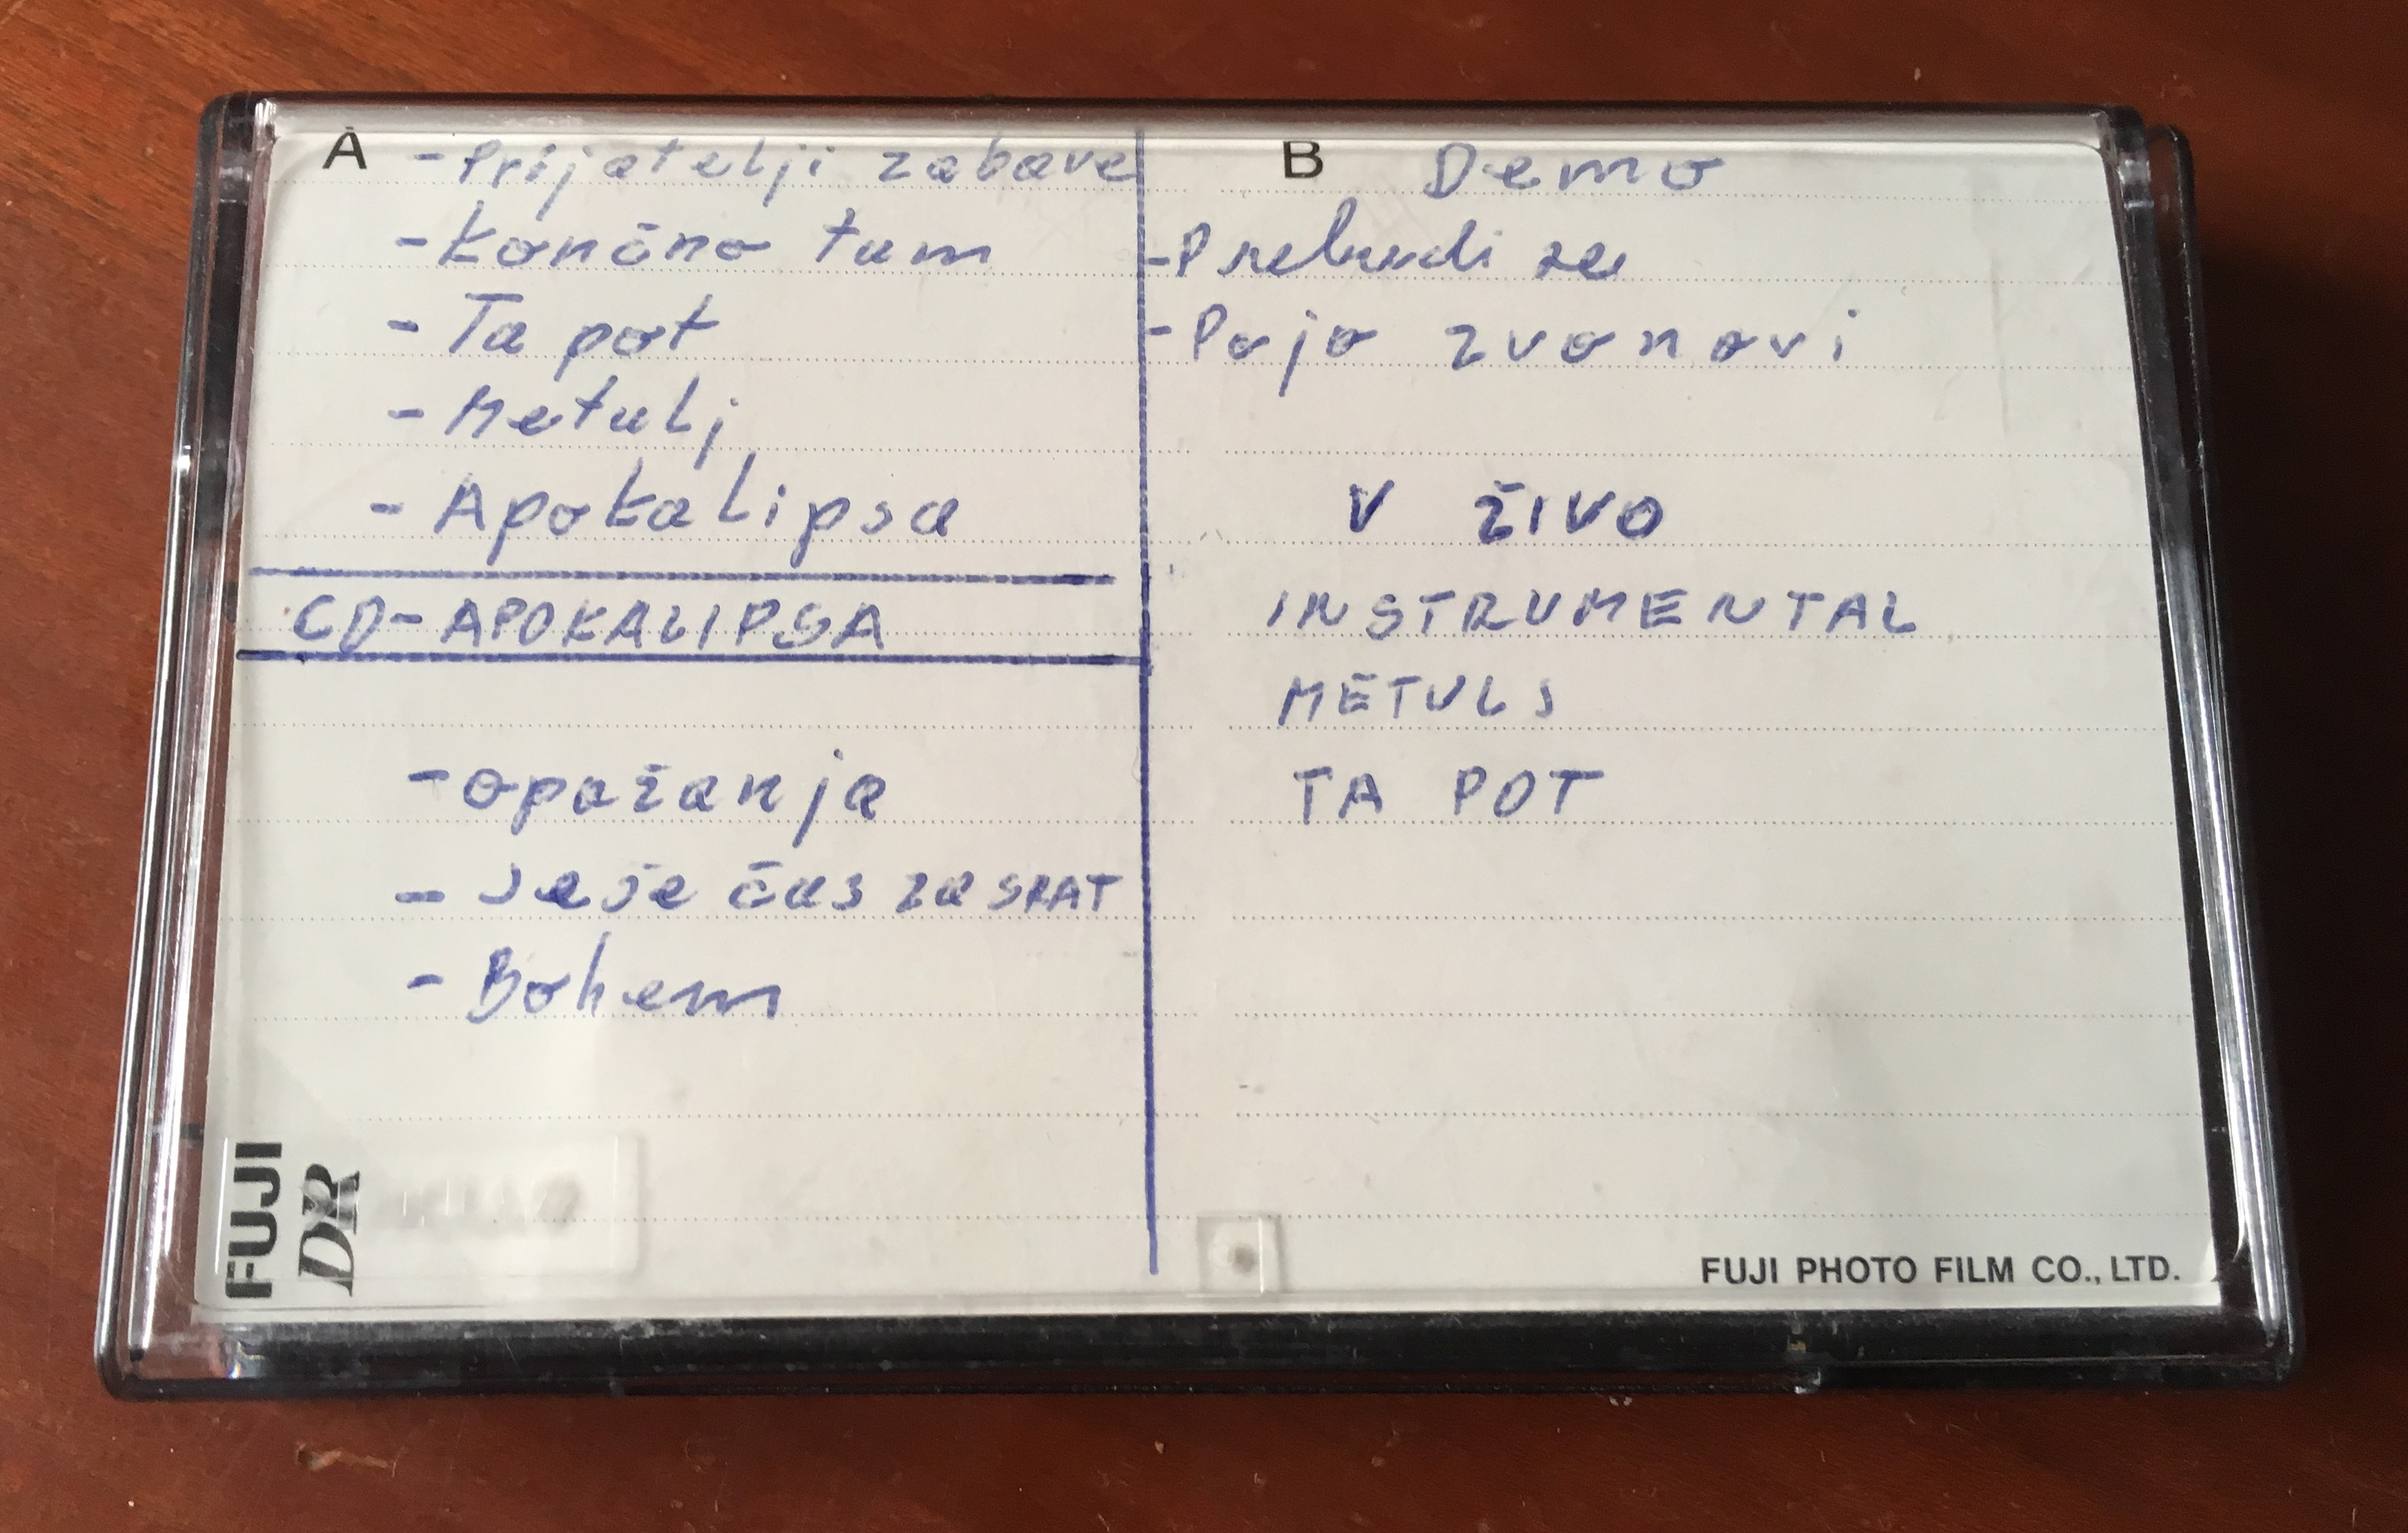 A
- Prijatelji zabave
- Končno tum
- Ta pot
- Metulj
- Apokalipsa
CD - APOKALIPSA
- opažanja
- Je že čas za SPAT
- Bohem
FUJI
DR
B Demo
- Prebudi se
- Pojo zvonovi
V ŽIVO
INSTRUMENTAL
METULJ
TA POT
FUJI PHOTO FILM CO., LTD.